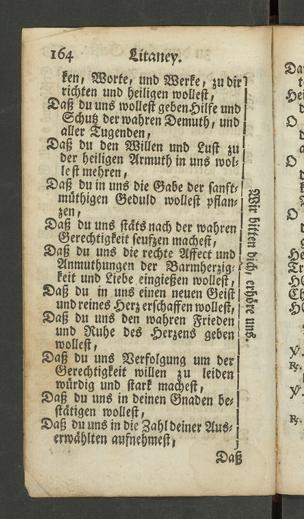 164 Litaney.
ken, Worte, und Werke, zu dir
richten und heiligen wollest,
Daß du uns wollest geben Hilfe und
Schutz der wahren Demuth, und
aller Tugenden,
Daß du den Willen und Lust zu
der heiligen Armuth in uns wol-
lest mehren,
Daß du in uns die Gabe der sanft-
müthigen Geduld wollest pflan-
zen,
Daß du uns stäts nach der wahren
Gerechtigkeit seufzen machest,
Daß du uns die rechte Affect und
Anmuthungen der Barmherzig-
keit und Liebe eingießen wollest,
Daß du in uns einen neuen Geist
und reines Herz erschaffen wollest,
Daß du uns den wahren Frieden
und Ruhe des Herzens geben
wollest,
Daß du uns Verfolgung um der
Gerechtigkeit willen zu leiden
würdig und stark machest,
Daß du uns in deinen Gnaden be-
stätigen wollest,
Daß du uns in die Zahl deiner Aus-
erwählten aufnehmest,
Wir bitten dich, erhöre uns.
Daß